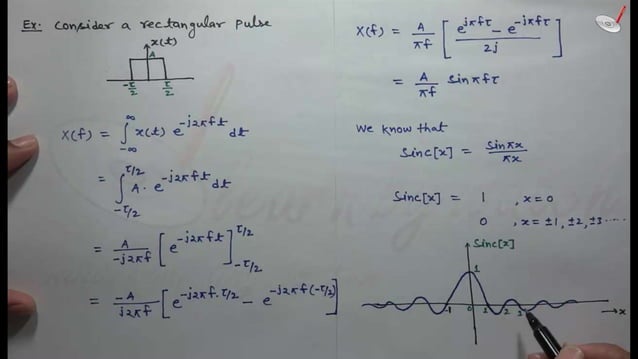 Ex: Consider a rectangular pulse
x(t)
A
-τ/2 τ/2
X(f) = ∫_{-∞}^{∞} x(t) e^{-j2πft} dt
= ∫_{-τ/2}^{τ/2} A. e^{-j2πft} dt
= A/(-j2πf) [e^{-j2πft}]_{-τ/2}^{τ/2}
= -A/(j2πf) [e^{-j2πf.τ/2} - e^{-j2πf(-τ/2)}]
X(f) = A/(πf) [(e^{jπfτ} - e^{-jπfτ})/(2j)]
= A/(πf) sinπfτ
We know that
Sinc[x] = sinπx/πx
Sinc[x] = 1 , x=0
0 , x = ±1, ±2, ±3 ·····
Sinc[x]
1
-1 0 1 2 3
→x